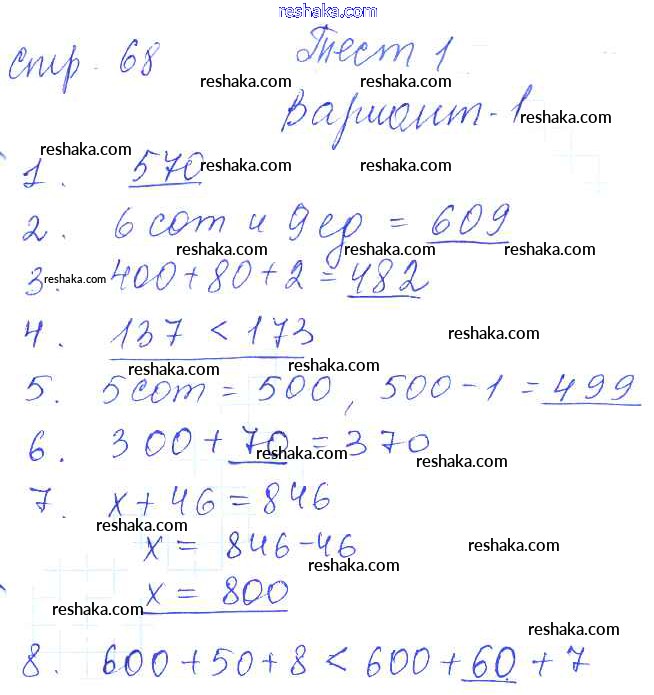 reshaka.com
стр. 68 Тест 1
reshaka.com reshaka.com
Вариант-1
reshaka.com
reshaka.com
1. 570
reshaka.com reshaka.com
2. 6 сот и 9 ед = 609
reshaka.com reshaka.com reshaka.com
3. 400+80+2=482
reshaka.com reshaka.com
4. 137 < 173
reshaka.com
reshaka.com reshaka.com
5. 5 сот = 500, 500-1=499
reshaka.com reshaka.com
6. 300+70=370
reshaka.com reshaka.com
7. x+46=846
reshaka.com
x = 846-46
reshaka.com
reshaka.com
x = 800
reshaka.com
reshaka.com
8. 600+50+8 < 600+60+7
reshaka.com reshaka.com